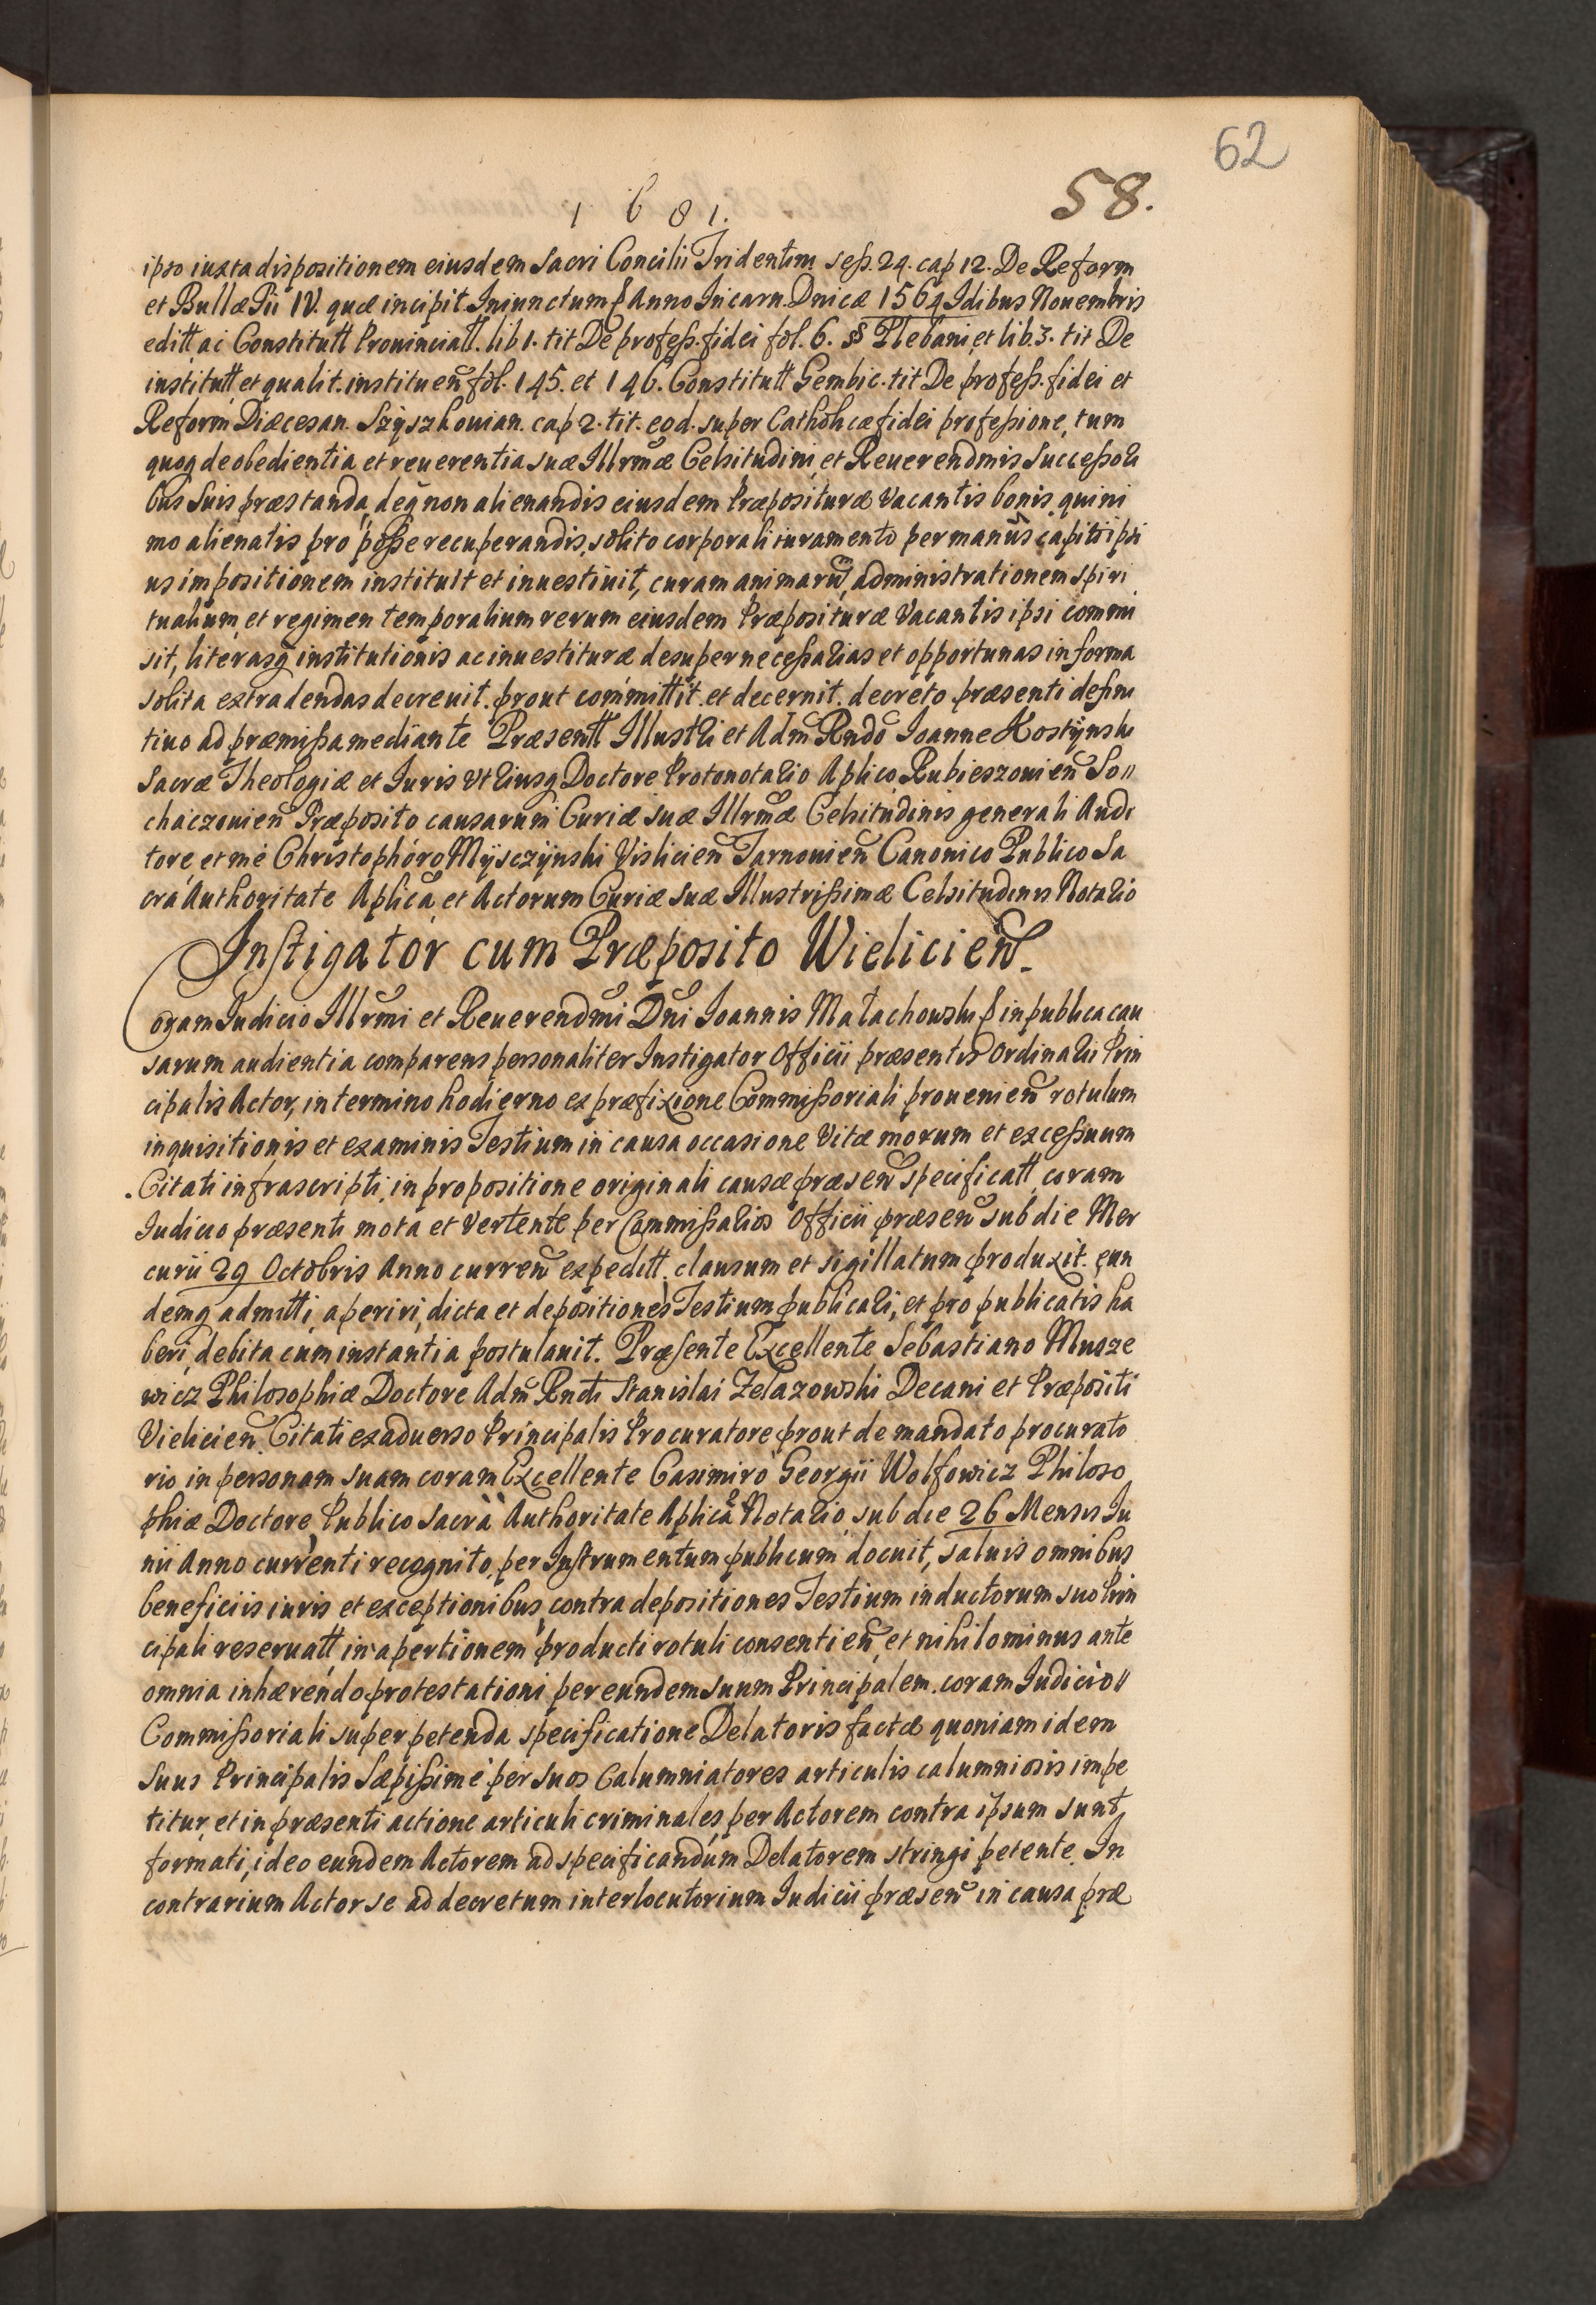 62
58.
1681.
ipso iuxta dispositionem eiusdem Sacri Concilii Tridentini seß. 24. cap 12. De Reform
et Bullæ Pii IV. quæ incipit Iniunctum Anno Incarn. Dnicæ 1564 Idibus Nouembris
editt ac Constitutt Prouinciatt. lib 1. tit De profeß. fidei fol. 6. §§ Plebani, et lib. 3. tit De
institutt et qualit. instituen̄ fol. 145. et 146. Constitutt Gembic. tit De profeß. fidei et
Reform̄ Diæcesan. Szyszkouian. cap 2. tit. eod. super Catholicæ fidei profeßione, tum
quoq de obedientia et reuerentia suæ Illrmæ Celsitudini, et Reuerendmis Succeßori
bus suis præstanda, deq non alienandis eiusdem Præposituræ Vacantis bonis, quini
mo alienatis pro poße recuperandis, solito corporali iuramento per manus capiti ipsi
us impositionem instituit et inuestiuit, curam animarū, administrationem spiri
tualium, et regimen temporalium rerum eiusdem Præposituræ Vacantis ipsi commi
sit, literasq institutionis ac inuestituræ desuper neceßarias et opportunas in forma
solita extradendas decreuit. prout committit. et decernit. decreto præsenti defini
tiuo ad præmißa mediante Præsentt Illustri et Adm̄ Rndo Ioanne Kostynski
Sacræ Theologiæ et Iuris Vtriusq Doctore Protonotario Aplico, Rubieszouien̄ So"
chaczouien̄ Præposito causarum Curiæ suæ Illrmæ Celsitudinis generali Audi
tore, et me Christophoro Mysczynski Vislicien̄ Tarnouien̄ Canonico Publico Sa
cra Authoritate Aplica, et Actorum Curiæ suæ Illustrißimæ Celsitudinis Notario
Instigator cum Præposito Wielicien̄.
Coram Iudicio Illrmi et Reuerendmi Dni Ioannis Małachowski in publica cau
sarum audientia comparens personaliter Instigator Officii præsentis Ordinarii Prin
cipalis Actor, in termino hodierno ex præfixione Commißoriali prouenien̄ rotulum
inquisitionis et examinis Testium in causa occasione Vitæ morum et exceßuum
Citati infrascripti, in propositione originali causæ præsen̄ specificatt, coram
Iudicio præsenti mota et vertente per Commißarios Officii præsen̄ sub die Mer
curii 29 Octobris Anno curren̄ expeditt. clausum et sigillatum produxit. eun
demq admitti, aperiri, dicta et depositiones Testium publicari, et pro publicatis ha
beri, debita cum instantia postulauit. Præsente Excellente Sebastiano Musze
wicz Philosophiæ Doctore Adm̄ Rndi Stanislai Zelazowski Decani et Præpositi
Vielicien̄. Citati ex aduerso Principalis Procuratore prout de mandato procurato
rio in personam suam coram Excellente Casimiro Georgii Wolfowicz Philoso
phiæ Doctore, Publico Sacrà Authoritate Aplicâ Notario, sub die 26 Mensis Iu
nii Anno currenti recognito, per Instrumentum publicum docuit, saluis omnibus
beneficiis iuris et exceptionibus, contra depositiones Testium inductorum suo Prin
cipali reseruatt, in apertionem producti rotuli consentien̄, et nihilominus ante
omnia inhærendo protestationi per eundem suum Principalem. coram Iudicio"
Commißoriali super petenda specificatione Delatoris factæ quoniam idem
Suus Principalis Sæpißimè per suos Calumniatores articulis calumniosis impe
titur, et in præsenti actione articuli criminales, per Actorem contra ipsum sunt
formati, ideo eundem Actorem ad specificandum Delatorem stringi petente. In
contrarium Actor se ad decretum interlocutorium Iudicii præsen̄ in causa præ